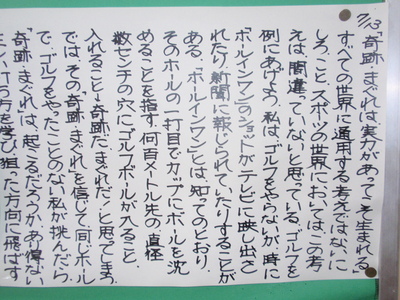 7/13
「奇跡、まぐれは実力があってこそ生まれる」
すべての世界に通用する考えではないに
しろ、こと、スポーツの世界においては、この考
えは、間違っていないと思っている。ゴルフを
例にあげよう。私は、ゴルフをやらないが、時に
「ホールインワン」のショットがテレビに映し出さ
れたり、新聞に報じられていたりすることが
ある。「ホールインワン」とは、知ってのとおり、
そのホールの一打目でカップにボールを沈
めることを指す。何百メートル先の、直径
数センチの穴にゴルフボールが入ること、
入れること→奇跡だ、まぐれだ!と思ってしまう。
では、その「奇跡、まぐれ」を信じて、同じホール
で、ゴルフをやったことのない私が挑んだら、
「奇跡、まぐれは、起こるだろうか。あり得ない
の方を学び、狙った方向に飛ばす